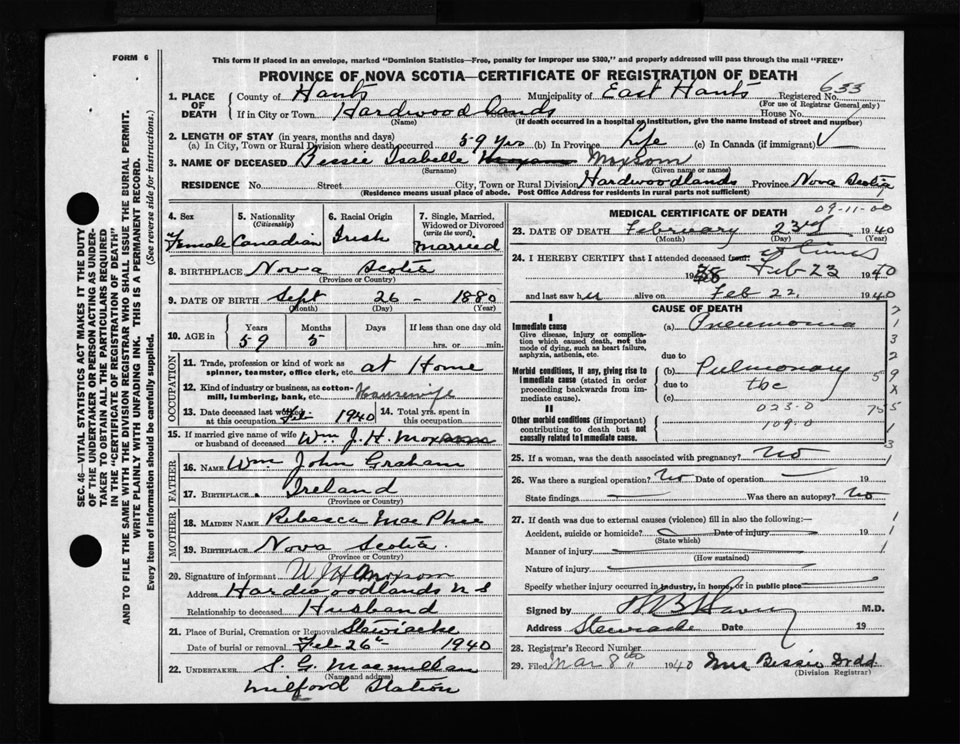 FORM 6
This form if placed in an envelope, marked "Dominion Statistics—Free, penalty for improper use $300," and properly addressed will pass through the mail "FREE"
PROVINCE OF NOVA SCOTIA—CERTIFICATE OF REGISTRATION OF DEATH
633
1. PLACE OF DEATH County of Hants Municipality of East Hants Registered No.
(For use of Registrar General only)
If in City or Town Hardwood Lands House No.
(Name) (If death occurred in a hospital or institution, give the name instead of street and number)
2. LENGTH OF STAY (in years, months and days)
(a) In City, Town or Rural Division where death occurred 59 yrs (b) In Province Life (c) In Canada (if immigrant)
3. NAME OF DECEASED Bessie Isabelle Moxsom
(Surname) (Given name or names)
RESIDENCE No. Street City, Town or Rural Division Hardwoodlands Province Nova Scotia
(Residence means usual place of abode. Post Office Address for residents in rural parts not sufficient)
4. Sex Female
5. Nationality (Citizenship) Canadian
6. Racial Origin Irish
7. Single, Married, Widowed or Divorced (write the word) Married
8. BIRTHPLACE Nova Scotia
(Province or Country)
9. DATE OF BIRTH Sept 26 - 1880
(Month) (Day) (Year)
10. AGE in Years 59 Months 5 Days If less than one day old hrs. or min.
OCCUPATION
11. Trade, profession or kind of work as spinner, teamster, office clerk, etc. at Home
12. Kind of industry or business, as cotton-mill, lumbering, bank, etc. Housewife
13. Date deceased last worked at this occupation Feb. 1940 14. Total yrs. spent in this occupation
15. If married give name of wife or husband of deceased Wm J. H. Moxsom
FATHER
16. NAME Wm John Graham
17. BIRTHPLACE Ireland
(Province or Country)
MOTHER
18. MAIDEN NAME Rebecca MacPhee
19. BIRTHPLACE Nova Scotia.
(Province or Country)
20. Signature of informant W J H Moxsom
Address Hardwoodlands N S
Relationship to deceased Husband
21. Place of Burial, Cremation or Removal Stewiacke
Date of burial or removal Feb 26th 1940
22. UNDERTAKER S. G. Macmillan
(Name and address)
Milford Station
MEDICAL CERTIFICATE OF DEATH
09-11-00
23. DATE OF DEATH February 23rd 1940
(Month) (Day) (Year)
24. I HEREBY CERTIFY that I attended deceased at times
Feb 23 1940
and last saw her alive on Feb 22, 1940
CAUSE OF DEATH
I
Immediate cause
Give disease, injury or complication which caused death, not the mode of dying, such as heart failure, asphyxia, asthenia, etc.
(a) Pneumonia
due to
Morbid conditions, if any, giving rise to immediate cause (stated in order proceeding backwards from immediate cause).
(b) Pulmonary
due to tbc
(c)
II
Other morbid conditions (if important) contributing to death but not causally related to immediate cause.
023.0
109.0
25. If a woman, was the death associated with pregnancy? No
26. Was there a surgical operation? No Date of operation 19
State findings Was there an autopsy? No
27. If death was due to external causes (violence) fill in also the following:—
Accident, suicide or homicide? Date of injury 19
(State which)
Manner of injury
(How sustained)
Nature of injury
Specify whether injury occurred in industry, in home, or in public place
Signed by M.D.
Address Stewiacke Date 19
28. Registrar's Record Number
29. Filed Mar 8th 1940 Mrs Bessie Dodd.
(Division Registrar)
SEC. 46—VITAL STATISTICS ACT MAKES IT THE DUTY OF THE UNDERTAKER OR PERSON ACTING AS UNDERTAKER TO OBTAIN ALL THE PARTICULARS REQUIRED IN THE "CERTIFICATE OF REGISTRATION OF DEATH" AND TO FILE THE SAME WITH THE DIVISION REGISTRAR WHO SHALL ISSUE THE BURIAL PERMIT.
WRITE PLAINLY WITH UNFADING INK. THIS IS A PERMANENT RECORD.
Every item of information should be carefully supplied. (See reverse side for instructions.)